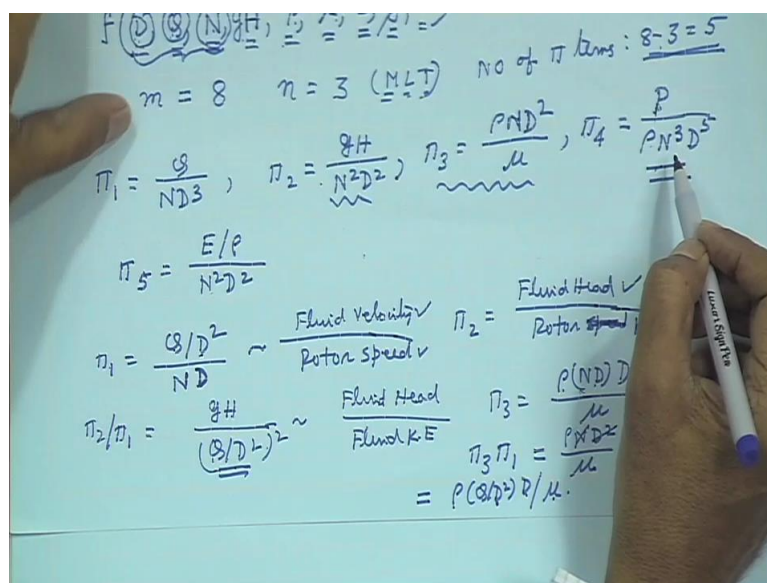 f(D, Q, N, gH, ρ,
m = 8 n = 3 (MLT) NO of π terms : 8-3 = 5
π₁ = Q/ND³, π₂ = gH/N²D², π₃ = ρND²/μ, π₄ = P/ρN³D⁵
π₅ = E/ρ / N²D²
π₁ = Q/D² / ND ~ Fluid Velocity / Rotor Speed π₂ = Fluid Head / Rotor
π₂/π₁ = gH / (Q/D²)² ~ Fluid Head / Fluid K E π₃ = ρ(ND) D / μ
π₃π₁ = ρND² / μ
= ρ(Q/D²) D/μ.
Luxor Sign Pen